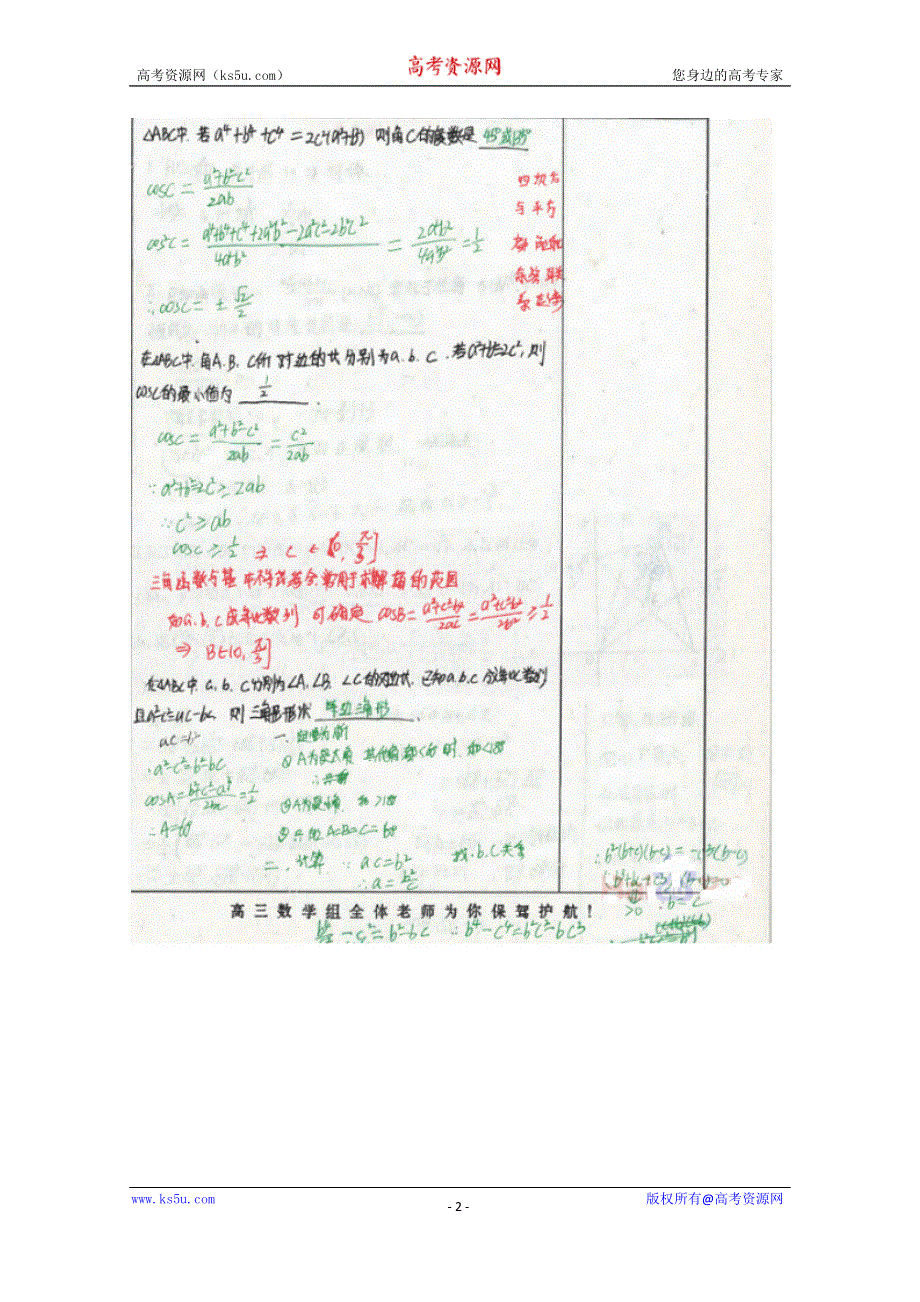 高考资源网（ks5u.com）
高考资源网
您身边的高考专家
△ABC中,若a⁴+b⁴+c⁴=2c²(a²+b²) 则角C的度数是 45°或135°
cosC=(a²+b²-c²)/2ab
cos²C=(a⁴+b⁴+c⁴+2a²b²-2a²c²-2b²c²)/4a²b²=2a²b²/4a²b²=1/2
∴cosC=±√2/2
四次方
与平方
联
在△ABC中,角A.B.C所对边的长分别为a.b.c.若a²+b²=2c²,则
cosC的最小值为 1/2.
cosC=(a²+b²-c²)/2ab=c²/2ab
∵a²+b²=2c²≥2ab
∴c²≥ab
cosC≥1/2 ⇒ C∈(0,π/3]
三角函数与基本不等式若会常用于求解角的范围
如a.b.c成等比数列 可确定 cosB=(a²+c²-b²)/2ac=(a²+c²-b²)/2b²≥1/2
⇒ B∈(0,π/3]
在△ABC中,a,b,c分别为∠A,∠B,∠C的对边长,已知a.b.c成等比数列
且a²-c²=ac-bc,则三角形形状 等边三角形.
ac=b²
∴a²-c²=b²-bc
cosA=(b²+c²-a²)/2bc=1/2
∴A=60°
一、
①A为最大角 其他角都<60°时,和<180°
∴
②A为最小角,和>180°
③只有A=B=C=60°
二、计算 ∵ac=b² 找b.c关系
∴a=b²/c
高三数学组全体老师为你保驾护航！
-c²=b²-bc ∴b⁴-c⁴=b²c²-bc³
∴b²(b+c)(b-c)=-c³(b-c)
>0
b=c
www.ks5u.com
- 2 -
版权所有@高考资源网